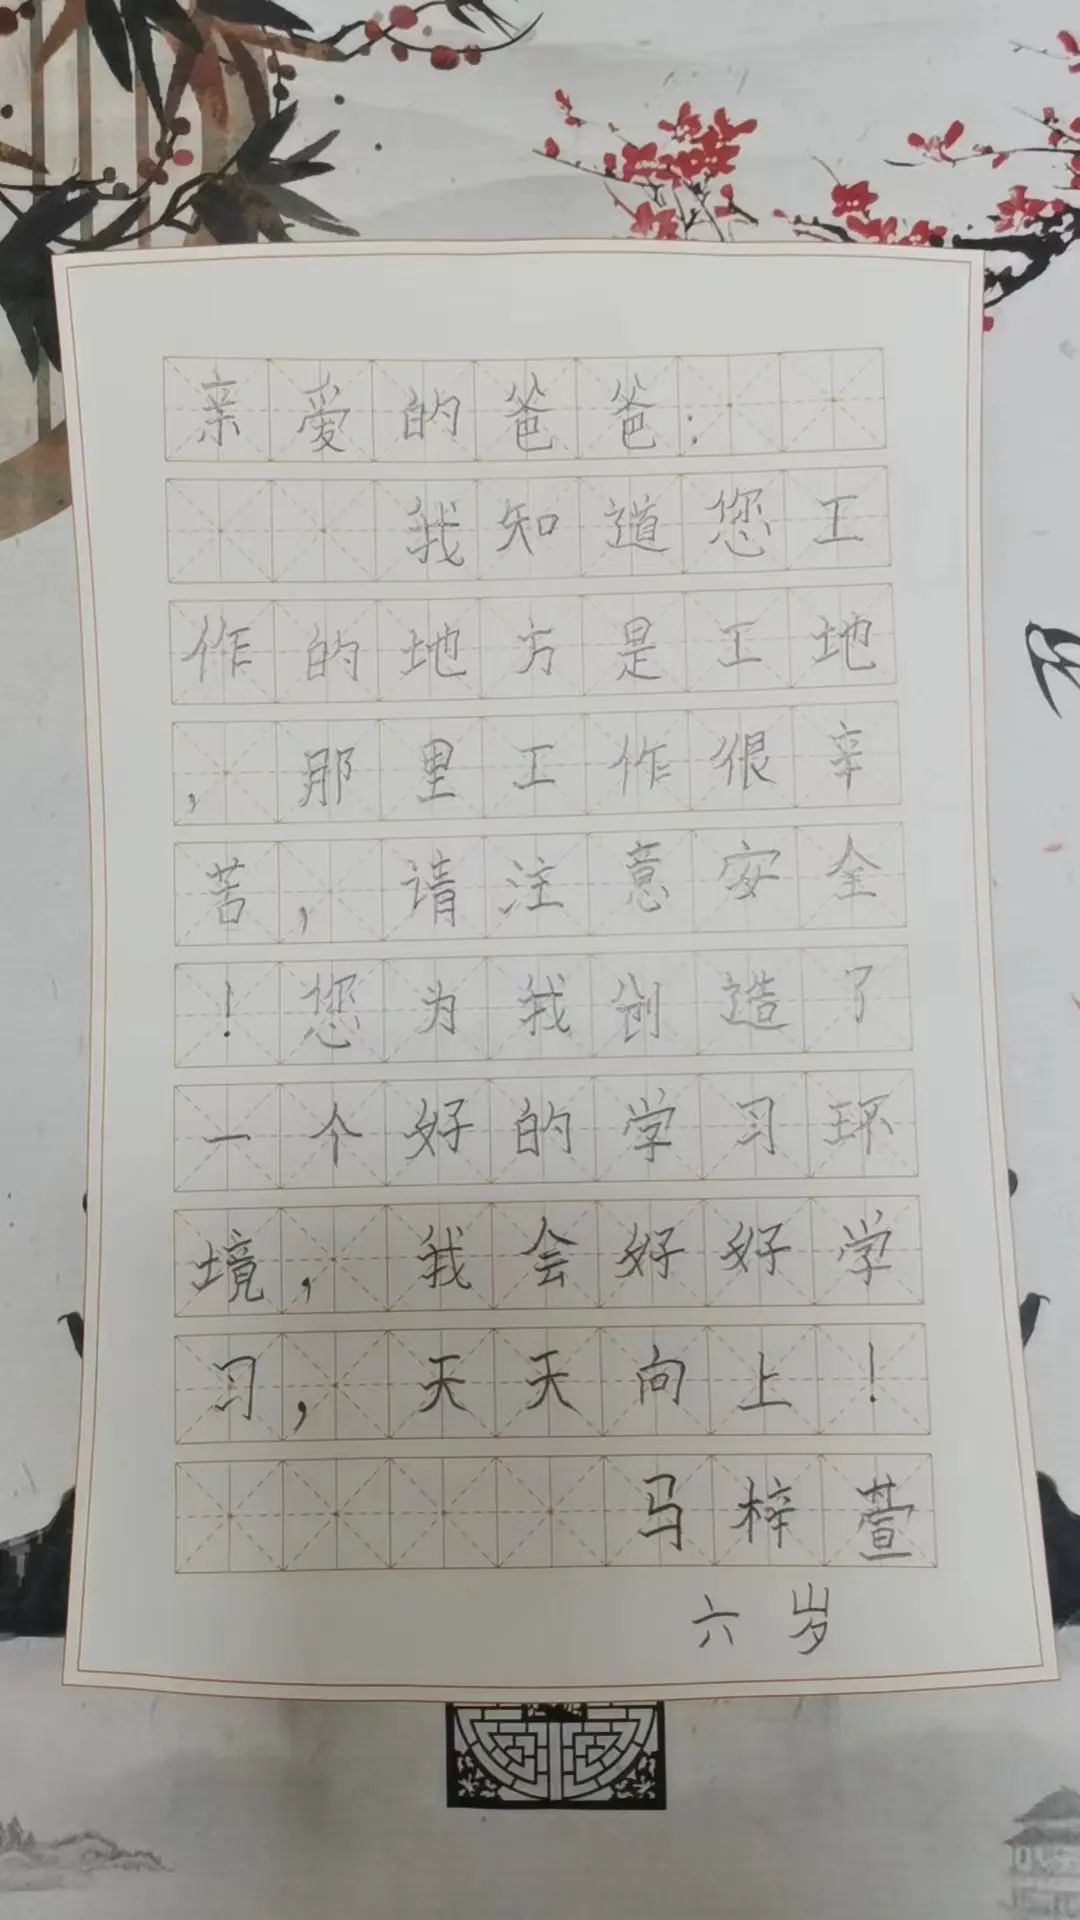 亲爱的爸爸：
我知道您工
作的地方是工地
，那里工作很辛
苦，请注意安全
！您为我创造了
一个好的学习环
境，我会好好学
习，天天向上！
马梓萱
六岁